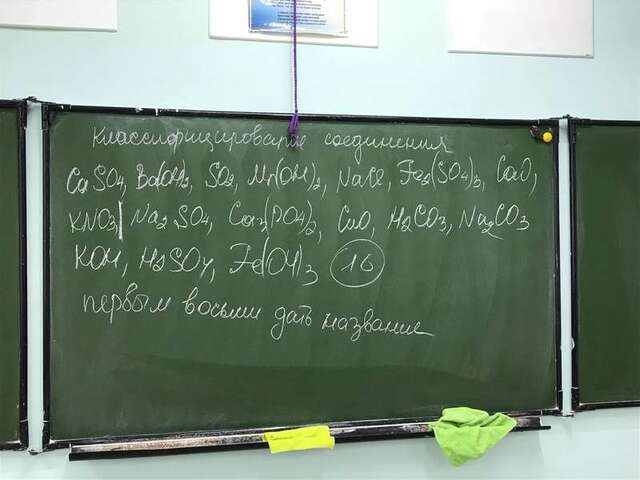 Классифицировать соединения
CaSO₄, Ba(OH)₂, SO₂, Mn(OH)₂, NaCl, Fe₂(SO₄)₃, CaO,
KNO₃ | Na₂SO₄, Ca₃(PO₄)₂, CuO, H₂CO₃, Na₂CO₃
KOH, H₂SO₄, Fe(OH)₃ 16
первым восьми дать название